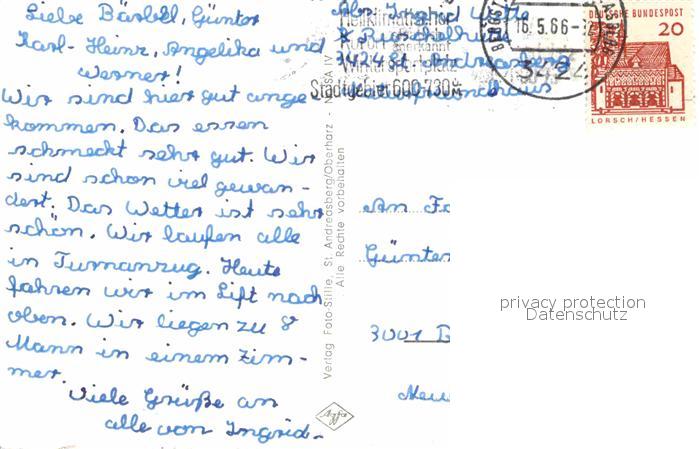 Liebe Bärbel, Günter
Karl-Heinz, Angelika und
Werner!
Wir sind hier gut ange
kommen. Das essen
schmeckt sehr gut. Wir
sind schon viel gewan-
dert. Das Wetter ist sehr
schön. Wir laufen alle
in Turnanzug. Heute
fahren wir im Lift nach
oben. Wir liegen zu 8
Mann in einem Zim-
mer.
Viele Grüße an
alle von Ingrid.
Abs. Ingrid
3424 St. Andreasberg
Heilklimatischer
Kurort
anerkannt
Wintersportplatz
Stadtgebiet 600-730m
16.5.66
3424
DEUTSCHE BUNDESPOST
20
LORSCH/HESSEN
Verlag Foto-Stille, St. Andreasberg/Oberharz
Alle Rechte vorbehalten
Agfa
An Fa
Günter
3001
Neu
privacy protection
Datenschutz